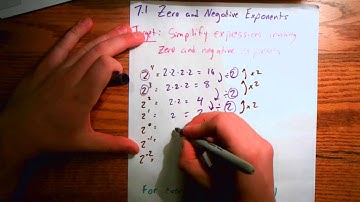 7.1 Zero and Negative Exponents
Target: Simplify expressions involving
zero and negative exponents
2⁴ 2·2·2·2 = 16 ÷2 ×2
2³ 2·2·2 = 8 ÷2 ×2
2² 2·2 = 4 ÷2 ×2
2¹ 2 =
2⁰ =
2⁻¹ =
2⁻² =
For